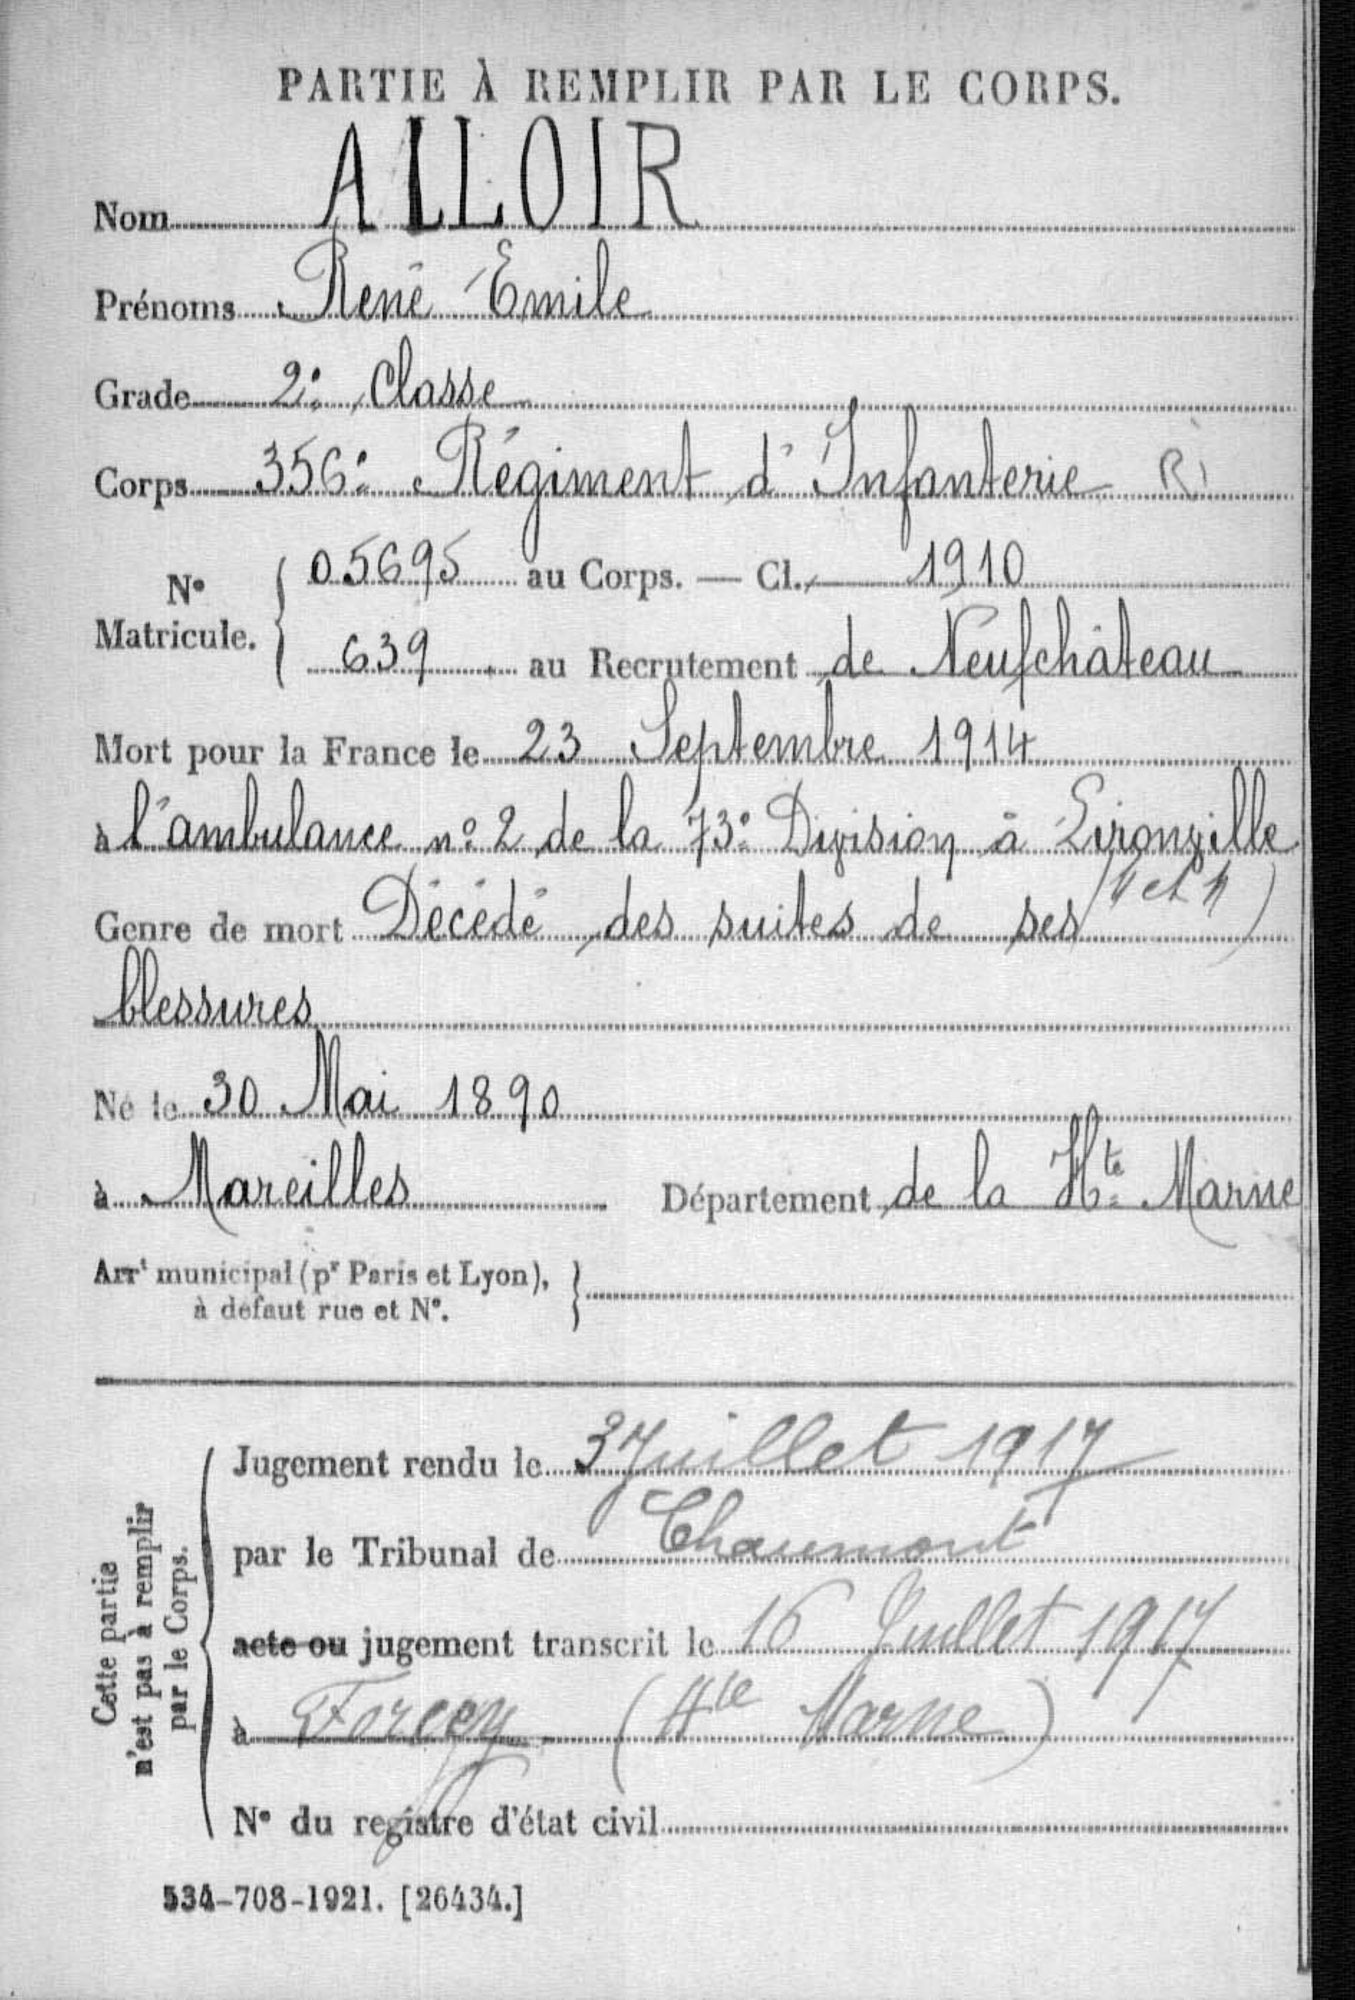 PARTIE À REMPLIR PAR LE CORPS.
Nom ALLOIR
Prénoms René Emile
Grade 2e Classe
Corps 356e Régiment d'Infanterie RI
N° Matricule. 05695 au Corps. — Cl. 1910
639 au Recrutement de Neufchâteau
Mort pour la France le 23 Septembre 1914
à l'ambulance n° 2 de la 73e Division à Lironville
(M et M)
Genre de mort Décédé des suites de ses
blessures
Né le 30 Mai 1890
à Mareilles Département de la Hte Marne
Arrt municipal (pr Paris et Lyon),
à défaut rue et N°.
Cette partie
n'est pas à remplir
par le Corps.
Jugement rendu le 3 Juillet 1917
par le Tribunal de Chaumont
acte ou jugement transcrit le 16 Juillet 1917
à Forcey (Hte Marne)
N° du registre d'état civil
534-708-1921. [26434.]